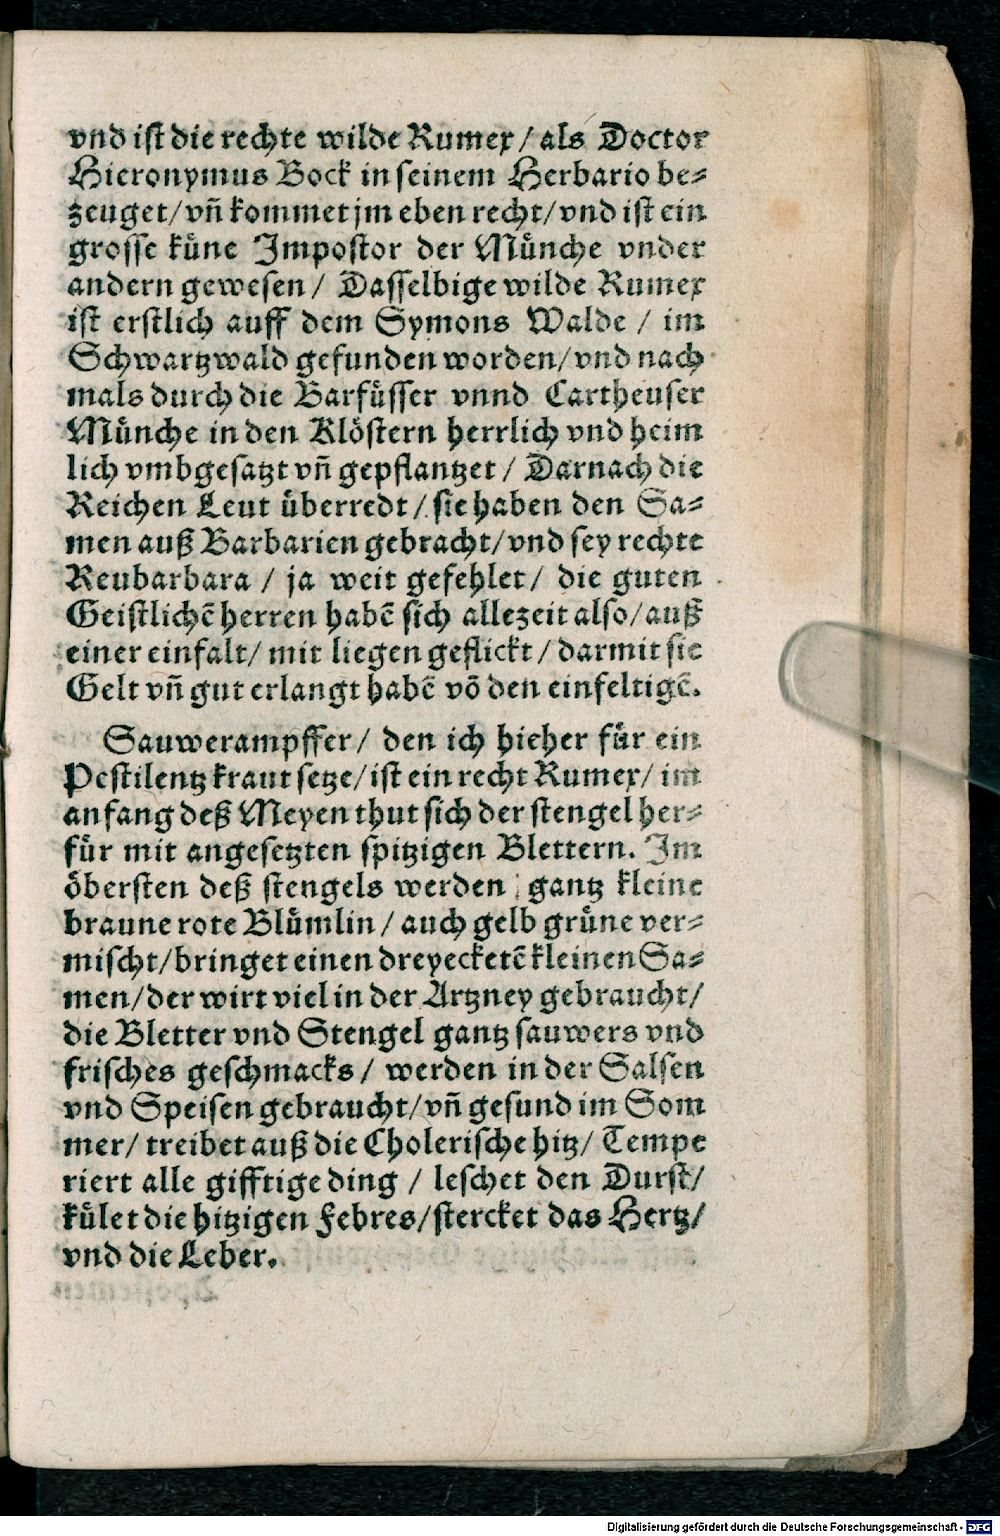 vnd ist die rechte wilde Rumex / als Doctor
Hieronymus Bock in seinem Herbario be-
zeuget / vñ kommet jm eben recht / vnd ist ein
grosse kuͤne Impostor der Muͤnche vnder
andern gewesen / Dasselbige wilde Rumex
ist erstlich auff dem Symons Walde / im
Schwartzwald gefunden worden / vnd nach
mals durch die Barfuͤsser vnnd Cartheuser
Muͤnche in den Kloͤstern herrlich vnd heim
lich vmbgesatzt vñ gepflantzet / Darnach die
Reichen Leut uͤberredt / sie haben den Sa-
men auß Barbarien gebracht / vnd sey rechte
Reubarbara / ja weit gefehlet / die guten
Geistlichẽ herren habẽ sich allezeit also / auß
einer einfalt / mit liegen geflickt / darmit sie
Gelt vñ gut erlangt habẽ võ den einfeltigẽ.
Sauwerampffer / den ich hieher fuͤr ein
Pestilentz kraut setze / ist ein recht Rumex / im
anfang deß Meyen thut sich der stengel her-
fuͤr mit angesetzten spitzigen Blettern. Im
oͤbersten deß stengels werden gantz kleine
braune rote Bluͤmlin / auch gelb gruͤne ver-
mischt / bringet einen dreyecketẽ kleinen Sa-
men / der wirt viel in der Artzney gebraucht /
die Bletter vnd Stengel gantz sauwers vnd
frisches geschmacks / werden in der Salsen
vnd Speisen gebraucht / vñ gesund im Som
mer / treibet auß die Cholerische hitz / Tempe
riert alle gifftige ding / leschet den Durst /
kuͤlet die hitzigen Febres / stercket das Hertz /
vnd die Leber.
Digitalisierung gefördert durch die Deutsche Forschungsgemeinschaft - DFG